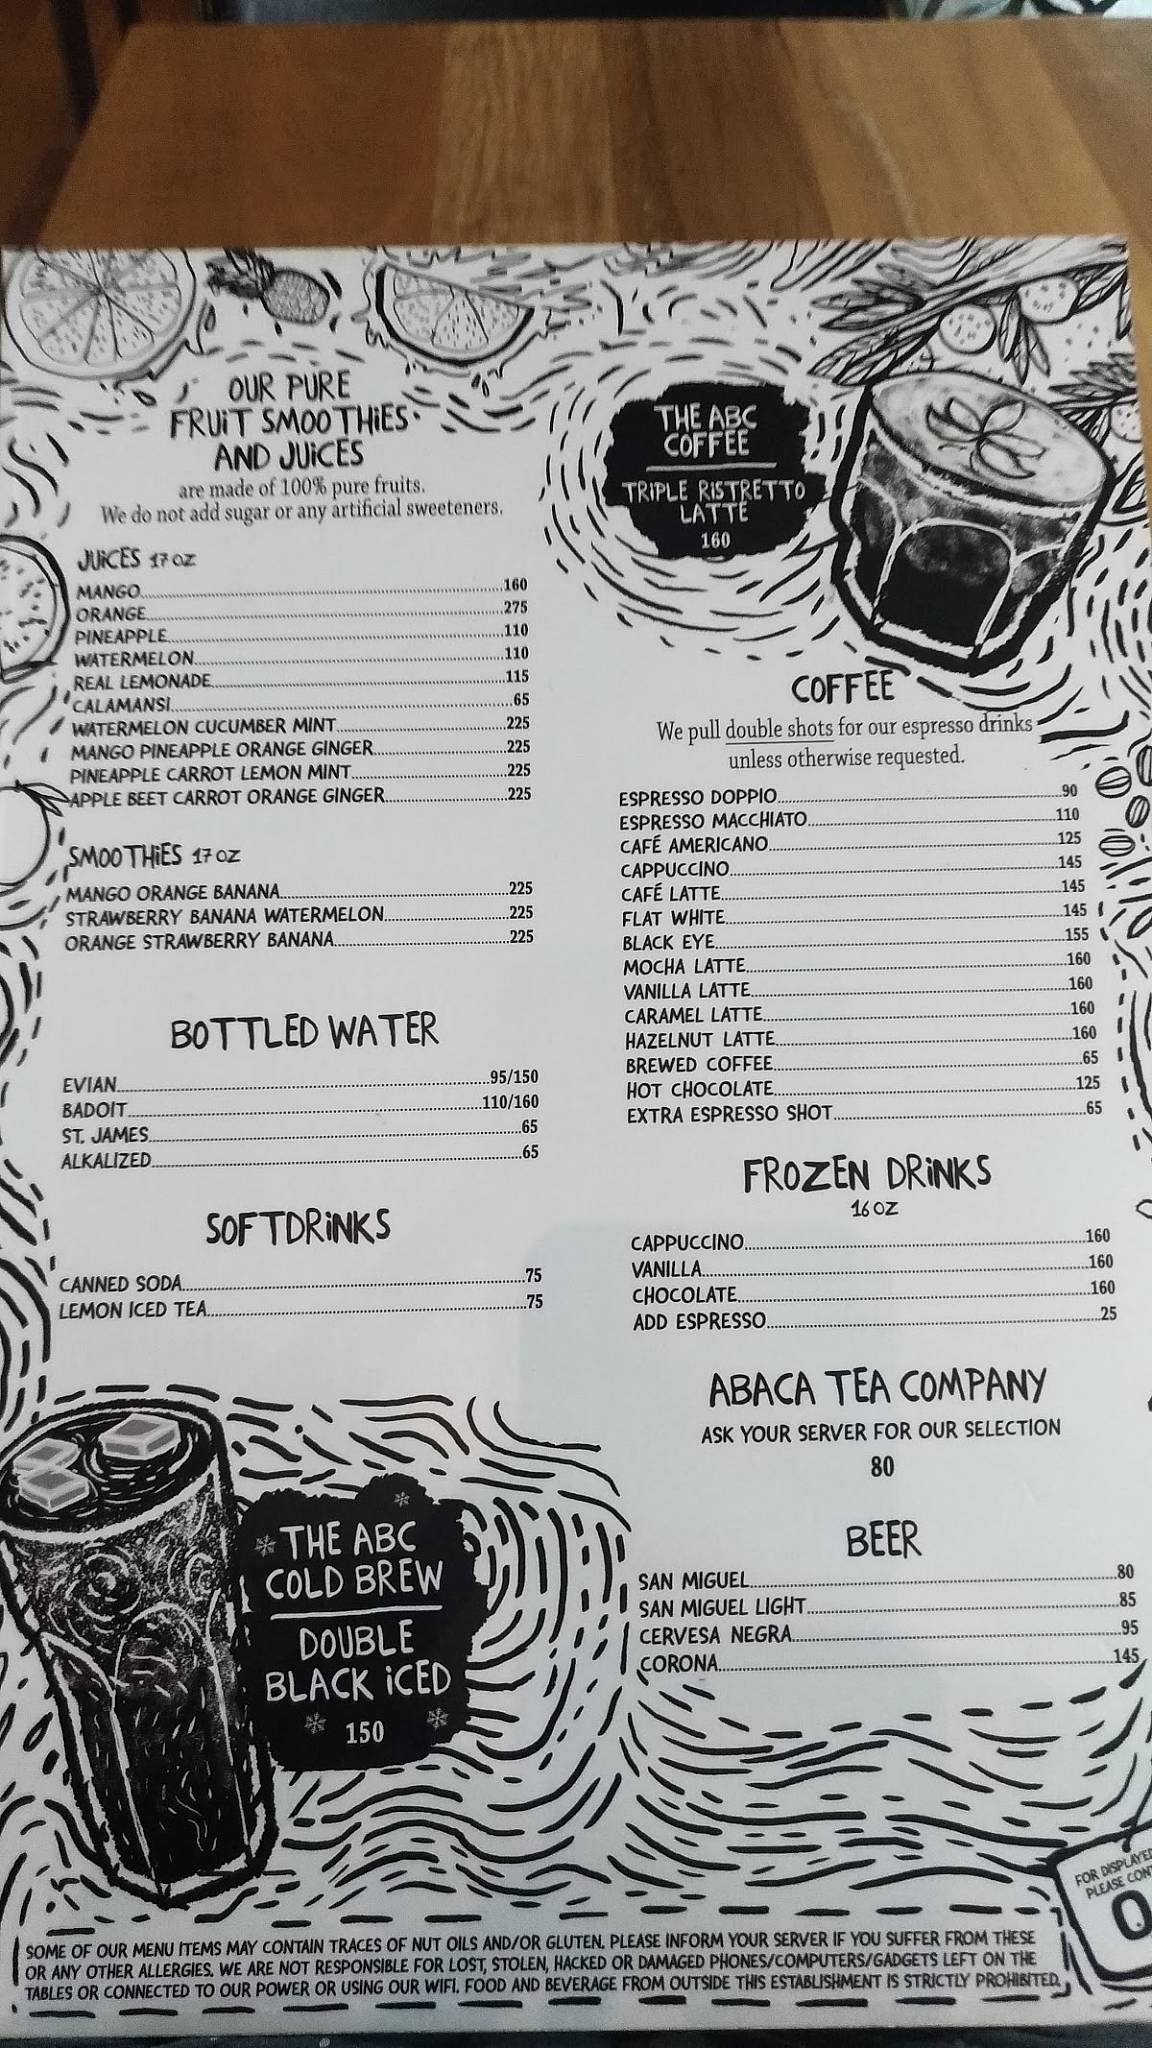 OUR PURE
FRUIT SMOOTHIES
AND JUICES
are made of 100% pure fruits.
We do not add sugar or any artificial sweeteners.
JUICES 17 OZ
MANGO 160
ORANGE 275
PINEAPPLE 110
WATERMELON 110
REAL LEMONADE 115
CALAMANSI 65
WATERMELON CUCUMBER MINT 225
MANGO PINEAPPLE ORANGE GINGER 225
PINEAPPLE CARROT LEMON MINT 225
APPLE BEET CARROT ORANGE GINGER 225
SMOOTHIES 17 OZ
MANGO ORANGE BANANA 225
STRAWBERRY BANANA WATERMELON 225
ORANGE STRAWBERRY BANANA 225
BOTTLED WATER
EVIAN 95/150
BADOIT 110/160
ST. JAMES 65
ALKALIZED 65
SOFTDRINKS
CANNED SODA 75
LEMON ICED TEA 75
THE ABC
COLD BREW
DOUBLE
BLACK ICED
150
THE ABC
COFFEE
TRIPLE RISTRETTO
LATTE
160
COFFEE
We pull double shots for our espresso drinks
unless otherwise requested.
ESPRESSO DOPPIO 90
ESPRESSO MACCHIATO 110
CAFÉ AMERICANO 125
CAPPUCCINO 145
CAFÉ LATTE 145
FLAT WHITE 145
BLACK EYE 155
MOCHA LATTE 160
VANILLA LATTE 160
CARAMEL LATTE 160
HAZELNUT LATTE 160
BREWED COFFEE 65
HOT CHOCOLATE 125
EXTRA ESPRESSO SHOT 65
FROZEN DRINKS
16 OZ
CAPPUCCINO 160
VANILLA 160
CHOCOLATE 160
ADD ESPRESSO 25
ABACA TEA COMPANY
ASK YOUR SERVER FOR OUR SELECTION
80
BEER
SAN MIGUEL 80
SAN MIGUEL LIGHT 85
CERVESA NEGRA 95
CORONA 145
FOR DISPLAYED
PLEASE
SOME OF OUR MENU ITEMS MAY CONTAIN TRACES OF NUT OILS AND/OR GLUTEN. PLEASE INFORM YOUR SERVER IF YOU SUFFER FROM THESE
OR ANY OTHER ALLERGIES. WE ARE NOT RESPONSIBLE FOR LOST, STOLEN, HACKED OR DAMAGED PHONES/COMPUTERS/GADGETS LEFT ON THE
TABLES OR CONNECTED TO OUR POWER OR USING OUR WIFI. FOOD AND BEVERAGE FROM OUTSIDE THIS ESTABLISHMENT IS STRICTLY PROHIBITED.